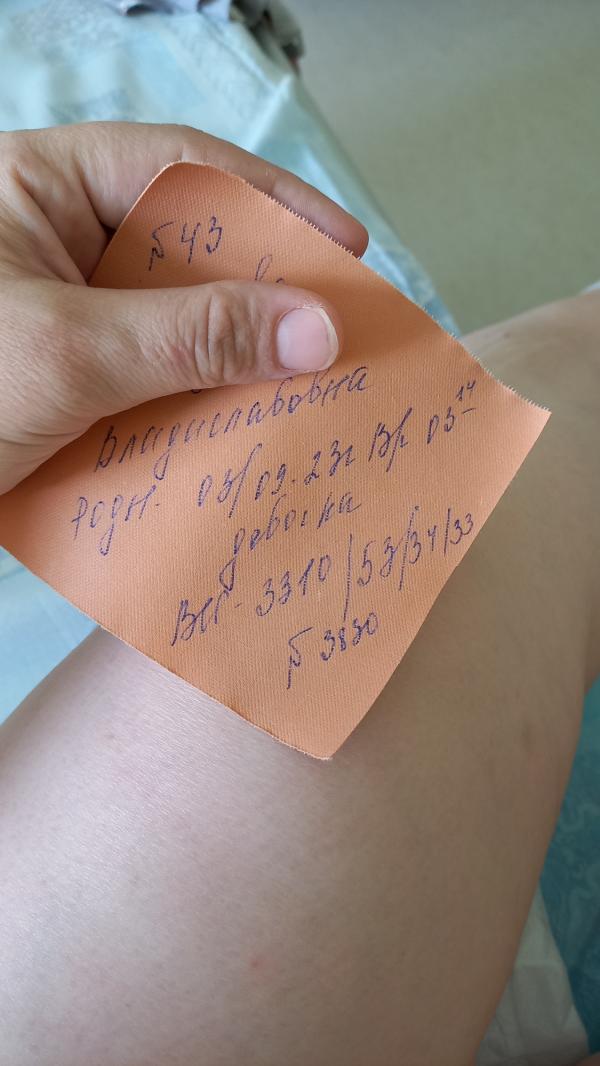 № 43
Владиславовна
Родн. 03/09.23г Вр 03 14
девочка
Вес- 3310/53/34/33
№ 3880